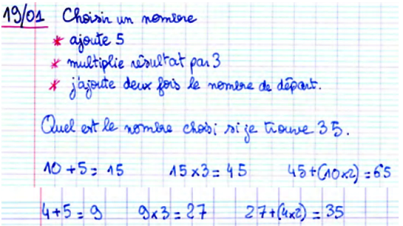 19/01 Choisir un nombre
* ajoute 5
* multiplie résultat par 3
* j'ajoute deux fois le nombre de départ.
Quel est le nombre choisi si je trouve 35.
10 + 5 = 15 15 x 3 = 45 45 + (10x2) = 65
4 + 5 = 9 9 x 3 = 27 27 + (4x2) = 35